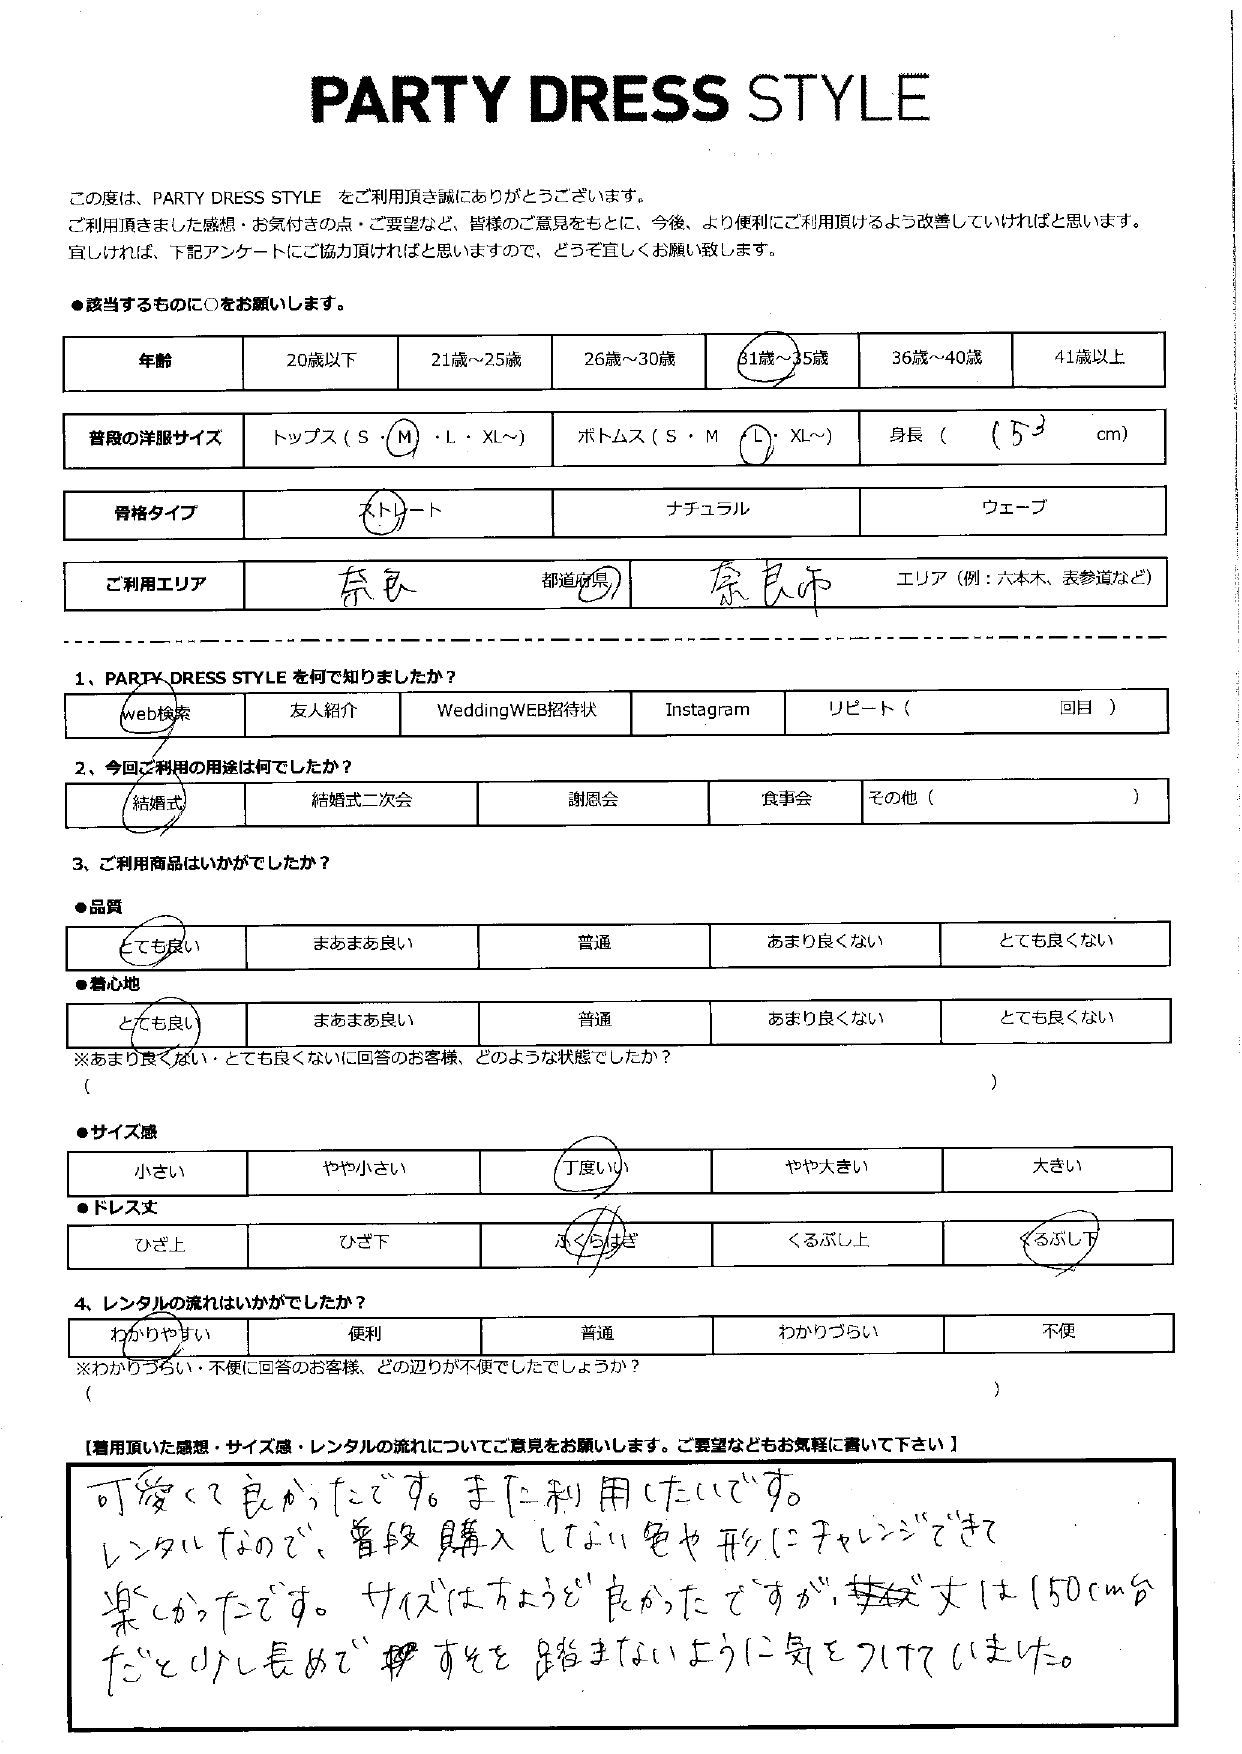 PARTY DRESS STYLE
この度は、PARTY DRESS STYLE をご利用頂き誠にありがとうございます。
ご利用頂きました感想・お気付きの点・ご要望など、皆様のご意見をもとに、今後、より便利にご利用頂けるよう改善していければと思います。
宜しければ、下記アンケートにご協力頂ければと思いますので、どうぞ宜しくお願い致します。
●該当するものに○をお願いします。
年齢 20歳以下 21歳～25歳 26歳～30歳 31歳～35歳 36歳～40歳 41歳以上
普段の洋服サイズ トップス ( S ・ M ・L ・ XL～) ボトムス ( S ・ M ・L・ XL～) 身長 ( 153 cm)
骨格タイプ ストレート ナチュラル ウェーブ
ご利用エリア 奈良 都道府県 奈良市 エリア（例：六本木、表参道など）
1、PARTY DRESS STYLE を何で知りましたか？
web検索 友人紹介 WeddingWEB招待状 Instagram リピート（ 回目 ）
2、今回ご利用の用途は何でしたか？
結婚式 結婚式二次会 謝恩会 食事会 その他（ ）
3、ご利用商品はいかがでしたか？
●品質
とても良い まあまあ良い 普通 あまり良くない とても良くない
●着心地
とても良い まあまあ良い 普通 あまり良くない とても良くない
※あまり良くない・とても良くないに回答のお客様、どのような状態でしたか？
( )
●サイズ感
小さい やや小さい 丁度いい やや大きい 大きい
●ドレス丈
ひざ上 ひざ下 ふくらはぎ くるぶし上 くるぶし下
4、レンタルの流れはいかがでしたか？
わかりやすい 便利 普通 わかりづらい 不便
※わかりづらい・不便に回答のお客様、どの辺りが不便でしたでしょうか？
( )
【着用頂いた感想・サイズ感・レンタルの流れについてご意見をお願いします。ご要望などもお気軽に書いて下さい】
可愛くて良かったです。また利用したいです。
レンタルなので、普段購入しない色や形にチャレンジできて
楽しかったです。サイズはちょうど良かったですが、丈は150cm台
だと少し長めで すそを踏まないように気をつけていました。